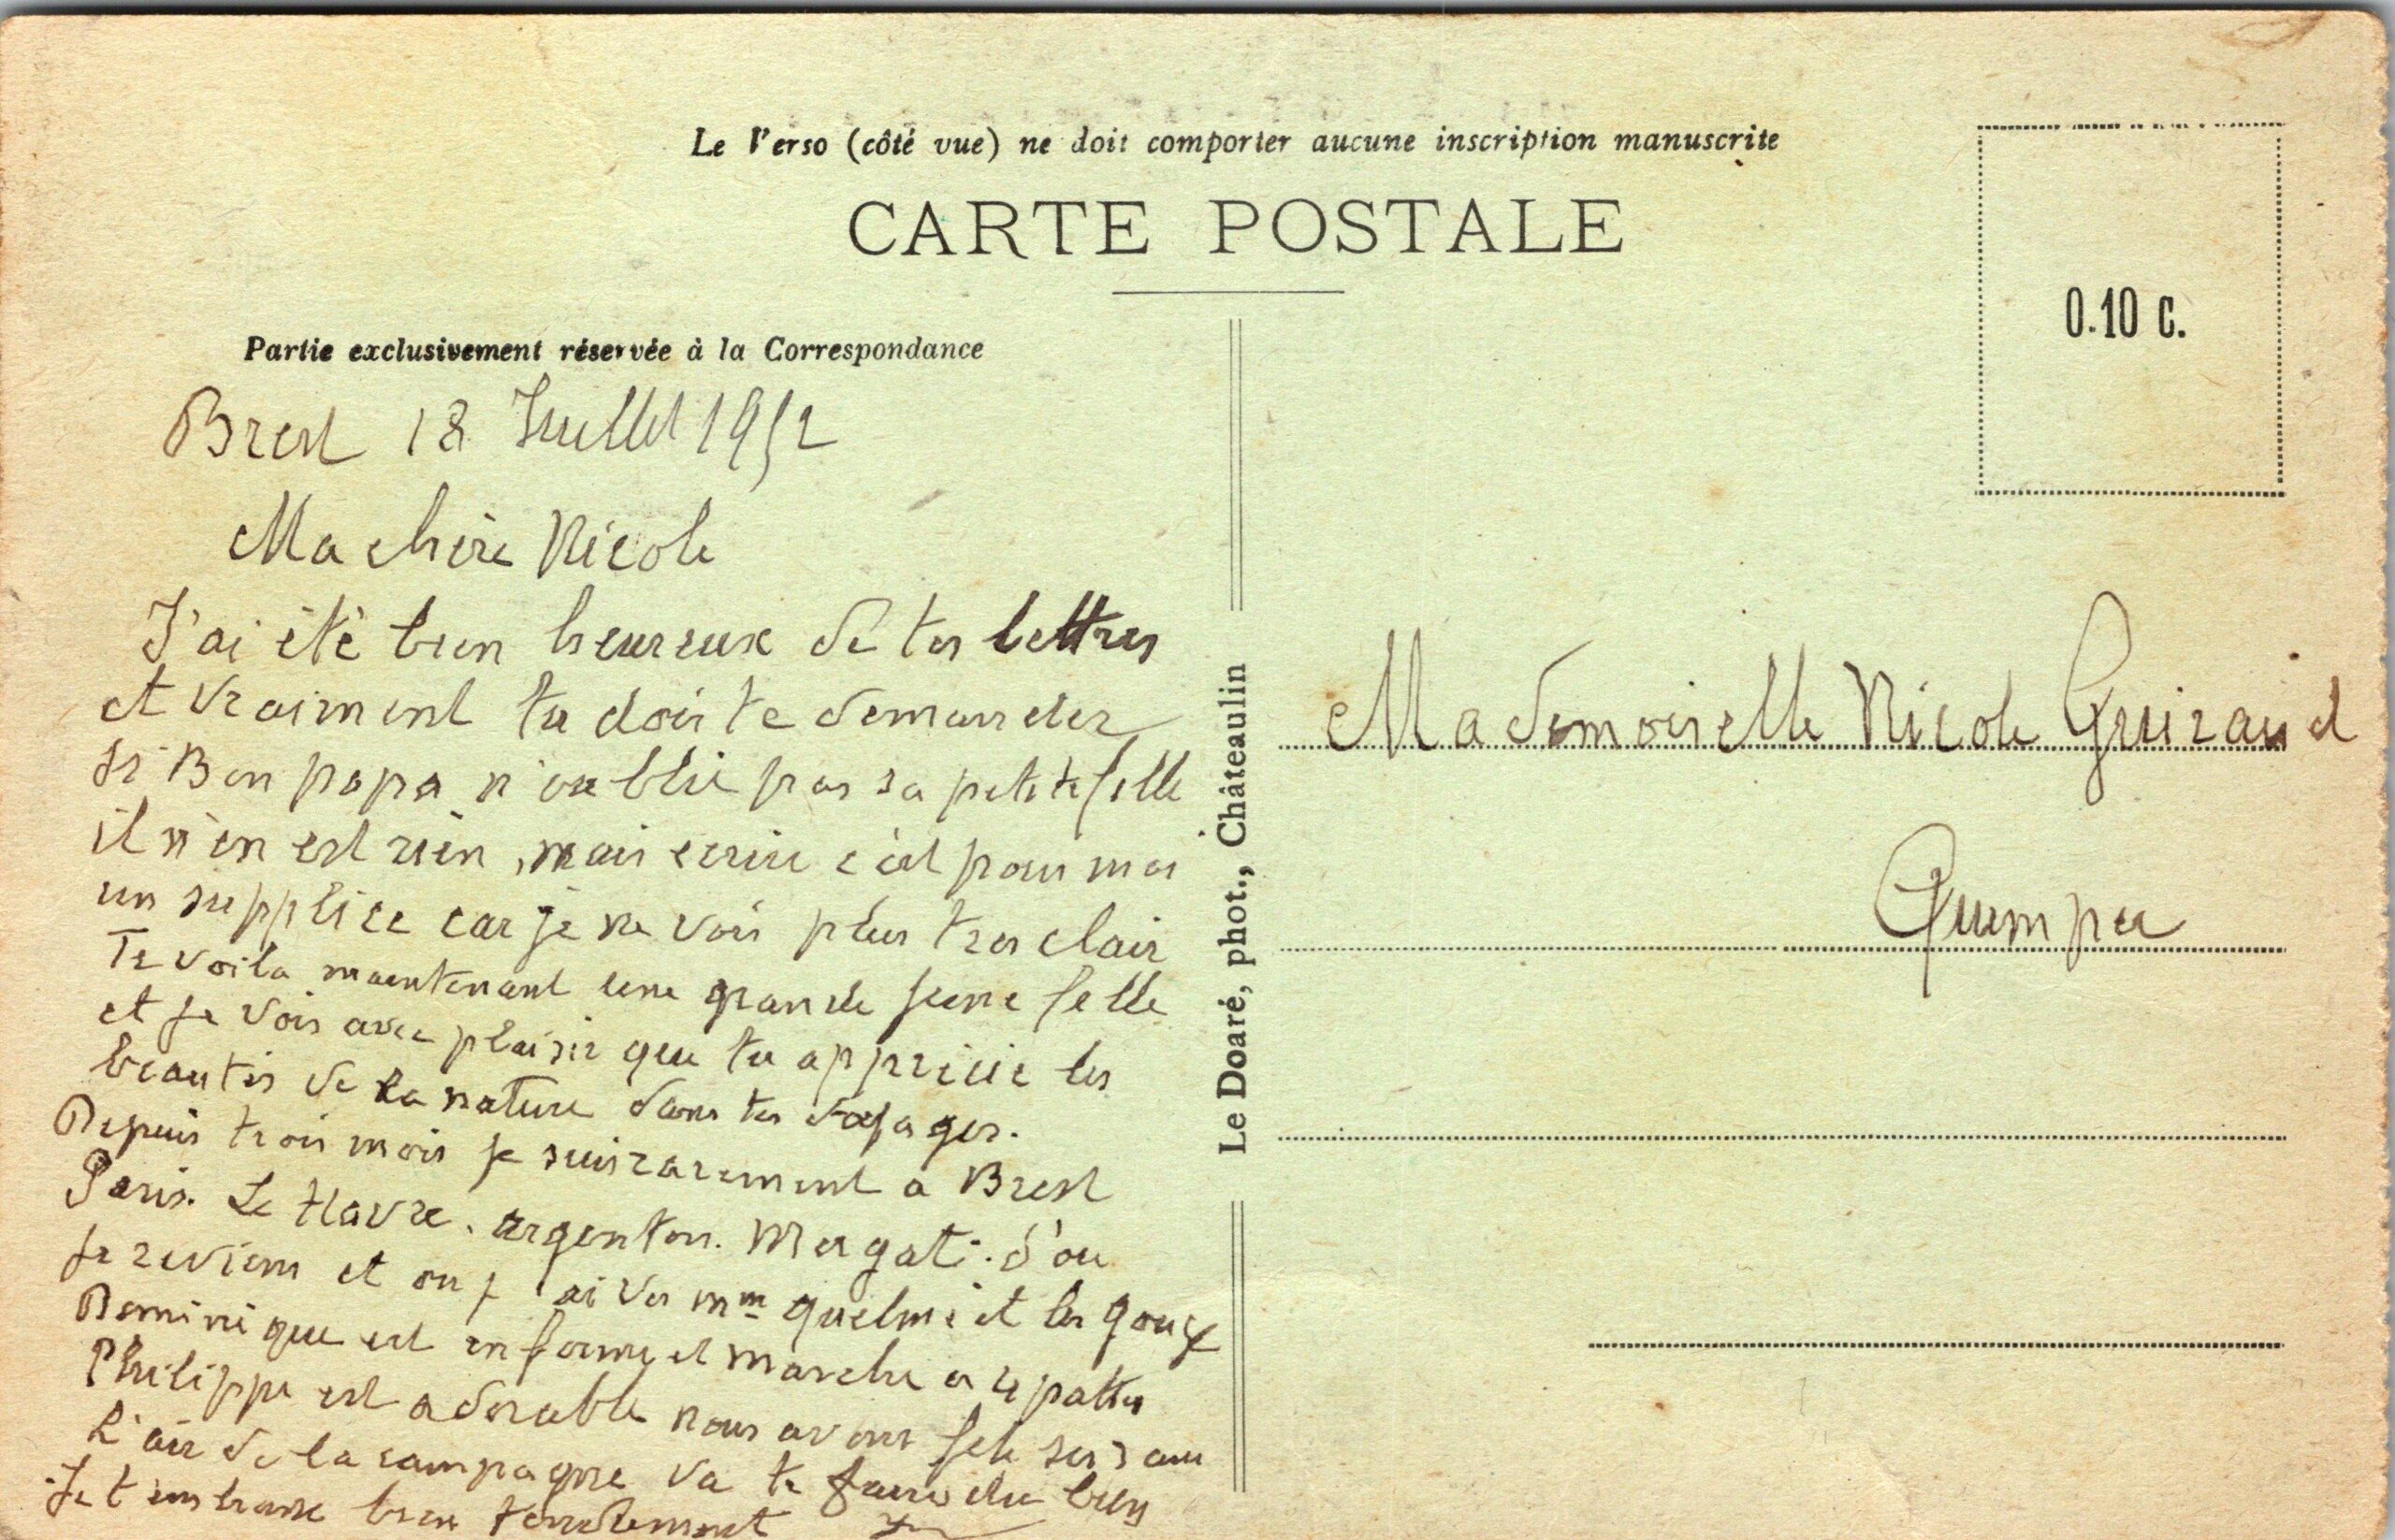 Le Verso (côté vue) ne doit comporter aucune inscription manuscrite
CARTE POSTALE
0.10 C.
Partie exclusivement réservée à la Correspondance
Brest 18 Juillet 1952
Ma chère Nicole
J'ai été bien heureux de tes lettres
et vraiment tu dois te demander
si Bon papa n'oublie pas sa petite fille
il n'en est rien, mais ecrire c'est pour moi
un supplice car je ne vois plus tres clair
Te voila maintenant une grande jeune fille
et je vois avec plaisir que tu apprecie les
beautés de la nature dans tes voyages.
Depuis trois mois je suis rarement a Brest
Paris. Le Havre. argenton. Morgat. d'ou
je reviens et ou j'ai vu mme et les
Dominique est en forme et marche a 4 pattes
Philippe est adorable nous avons fete ses 3 ans
L'air de la campagne va te faire du bien
Je t'embrasse bien tendrement
Le Doaré, phot., Châteaulin
Mademoiselle Nicole Guiraud
Quimper